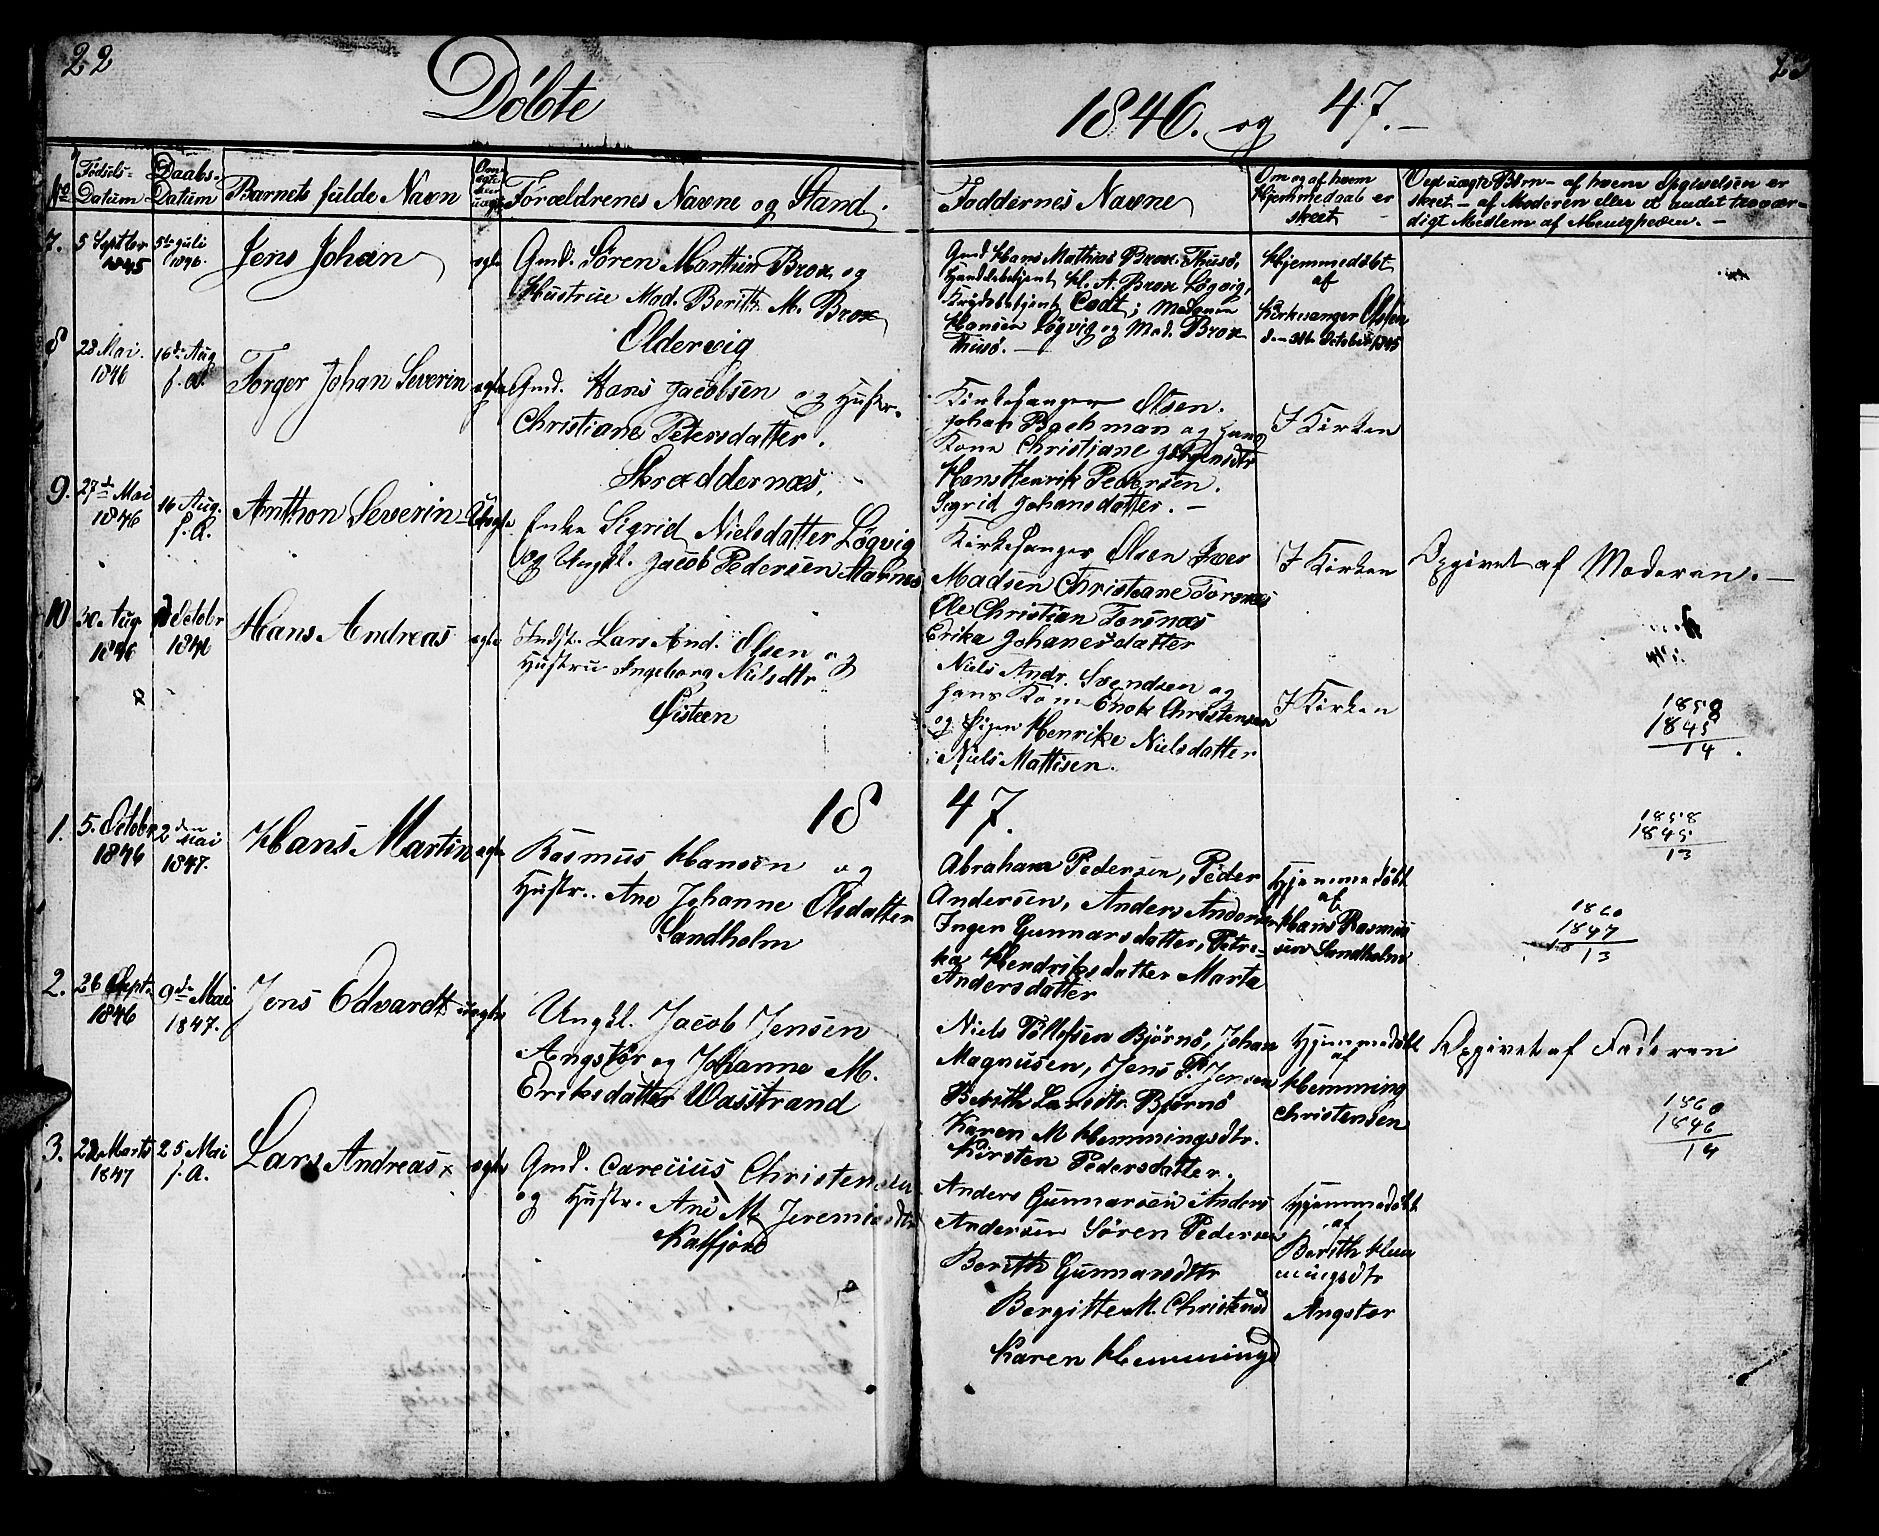 22
Döbte
1846. og 47.
No
Fødsels-Datum
Daabs-Datum
Barnets fulde Navn
Om ægte eller uægte
Forældrenes Navne og Stand.
Faddernes Navne
Om og af hvem Hjemmedaab er skeet
Ved uægte Börn - af hvem Opgivelsen er skeet - af Moderen eller et andet troværdigt Medlem af Menigheden. -
7.
5 Septber 1845
5te Juli 1846.
Jens Johan
ægte
Gmd. Sören Marthin Brox og
Hustrue Mad. Berith M. Brox
Oldervig
Gmd Hans Mathias Brox Thusö,
Handelsbetjent H. A. Brox Løgvig,
Krydsbetjent Codt; Madame
Hansen Løgvig og Mad. Brox
Thusö. -
Hjemmedöbt
af
Kirkesanger Olsen
d. 3te October 1845
8
28 Mai. 1846
16de Aug f. A.
Torger Johan Severin
ægte
Gmd. Hans Jacobsen og Hustr.
Christiane Petersdatter.
Skræddernæs.
Kirkesanger Olsen.
Johan Bachman og hans
Kone Christiane Jørgensdtr
Hans Henrik Pedersen.
Sigrid Johansdatter. -
I Kirken
9.
27de Mai 1846
16 Aug. f. A.
Anthon Severin
Uægte
Enke Sigrid Nielsdatter Løgvig
og Ungkl. Jacob Pedersen Aarnæs
Kirkesanger Olsen Iver
Madsen Christiane Torsnæs
Ole Christian Torsnæs
Erika Johanesdatter
I Kirken
Opgivet af Moderen. -
10
30 Aug 1846
October 1846
Hans Andreas
ægte
Indst. Lars And. Olsen og
Hustru Ingeborg Nielsdtr
Øisteen
Niels Andr. Svendsen og
hans Kone Enok Christensen
og Pigen Henrike Nielsdatter
Niels Mattisen.
I Kirken
1858
1845
14.
18 47.
1.
5. Octobr 1846
2den Mai 1847.
Hans Martin
ægte
Rasmus Hansen og
Hustr. Ane Johanne Olsdatter
Sandholm
Abraham Pedersen, Peder
Andersen, Anders Andersen
Inger Gunnarsdatter, Petri-
ka Hendriksdatter Marta
Andersdatter
Hjemmedöbt
af
Hans Rasmus
sen Sandholm
1858
1845
13
1860
1847
13
2.
26 Sept. 1846
9de Mai 1847.
Jens Edvardt
uægte
Ungkl. Jacob Jensen
Angstør og Johanne M.
Eriksdatter Vasstrand
Niels Tollefsen Bjørnö, Johan
Magnusen, Jens P. Jensen
Berith Larsdtr. Bjørnö
Karen M Hemmingsdtr.
Kirsten Pedersdatter.
Hjemmedöbt
af
Hemming
Christensen
Opgivet af Faderen
1860
1846
14
3.
22 Marts 1847
25 Mai f. A.
Lars Andreas
ægte
Gmd. Carelius Christensen
og Hustr. Ane M. Jeremiasdtr
Kalfjord
Anders Gunnarsen Anders
Andersen Sören Pedersen
Berith Gunnarsdtr
Bergitte M. Christensd
Karen Hemmingsd
Hjemmedöbt
af
Berith Hem
mingsdtr
Angstør